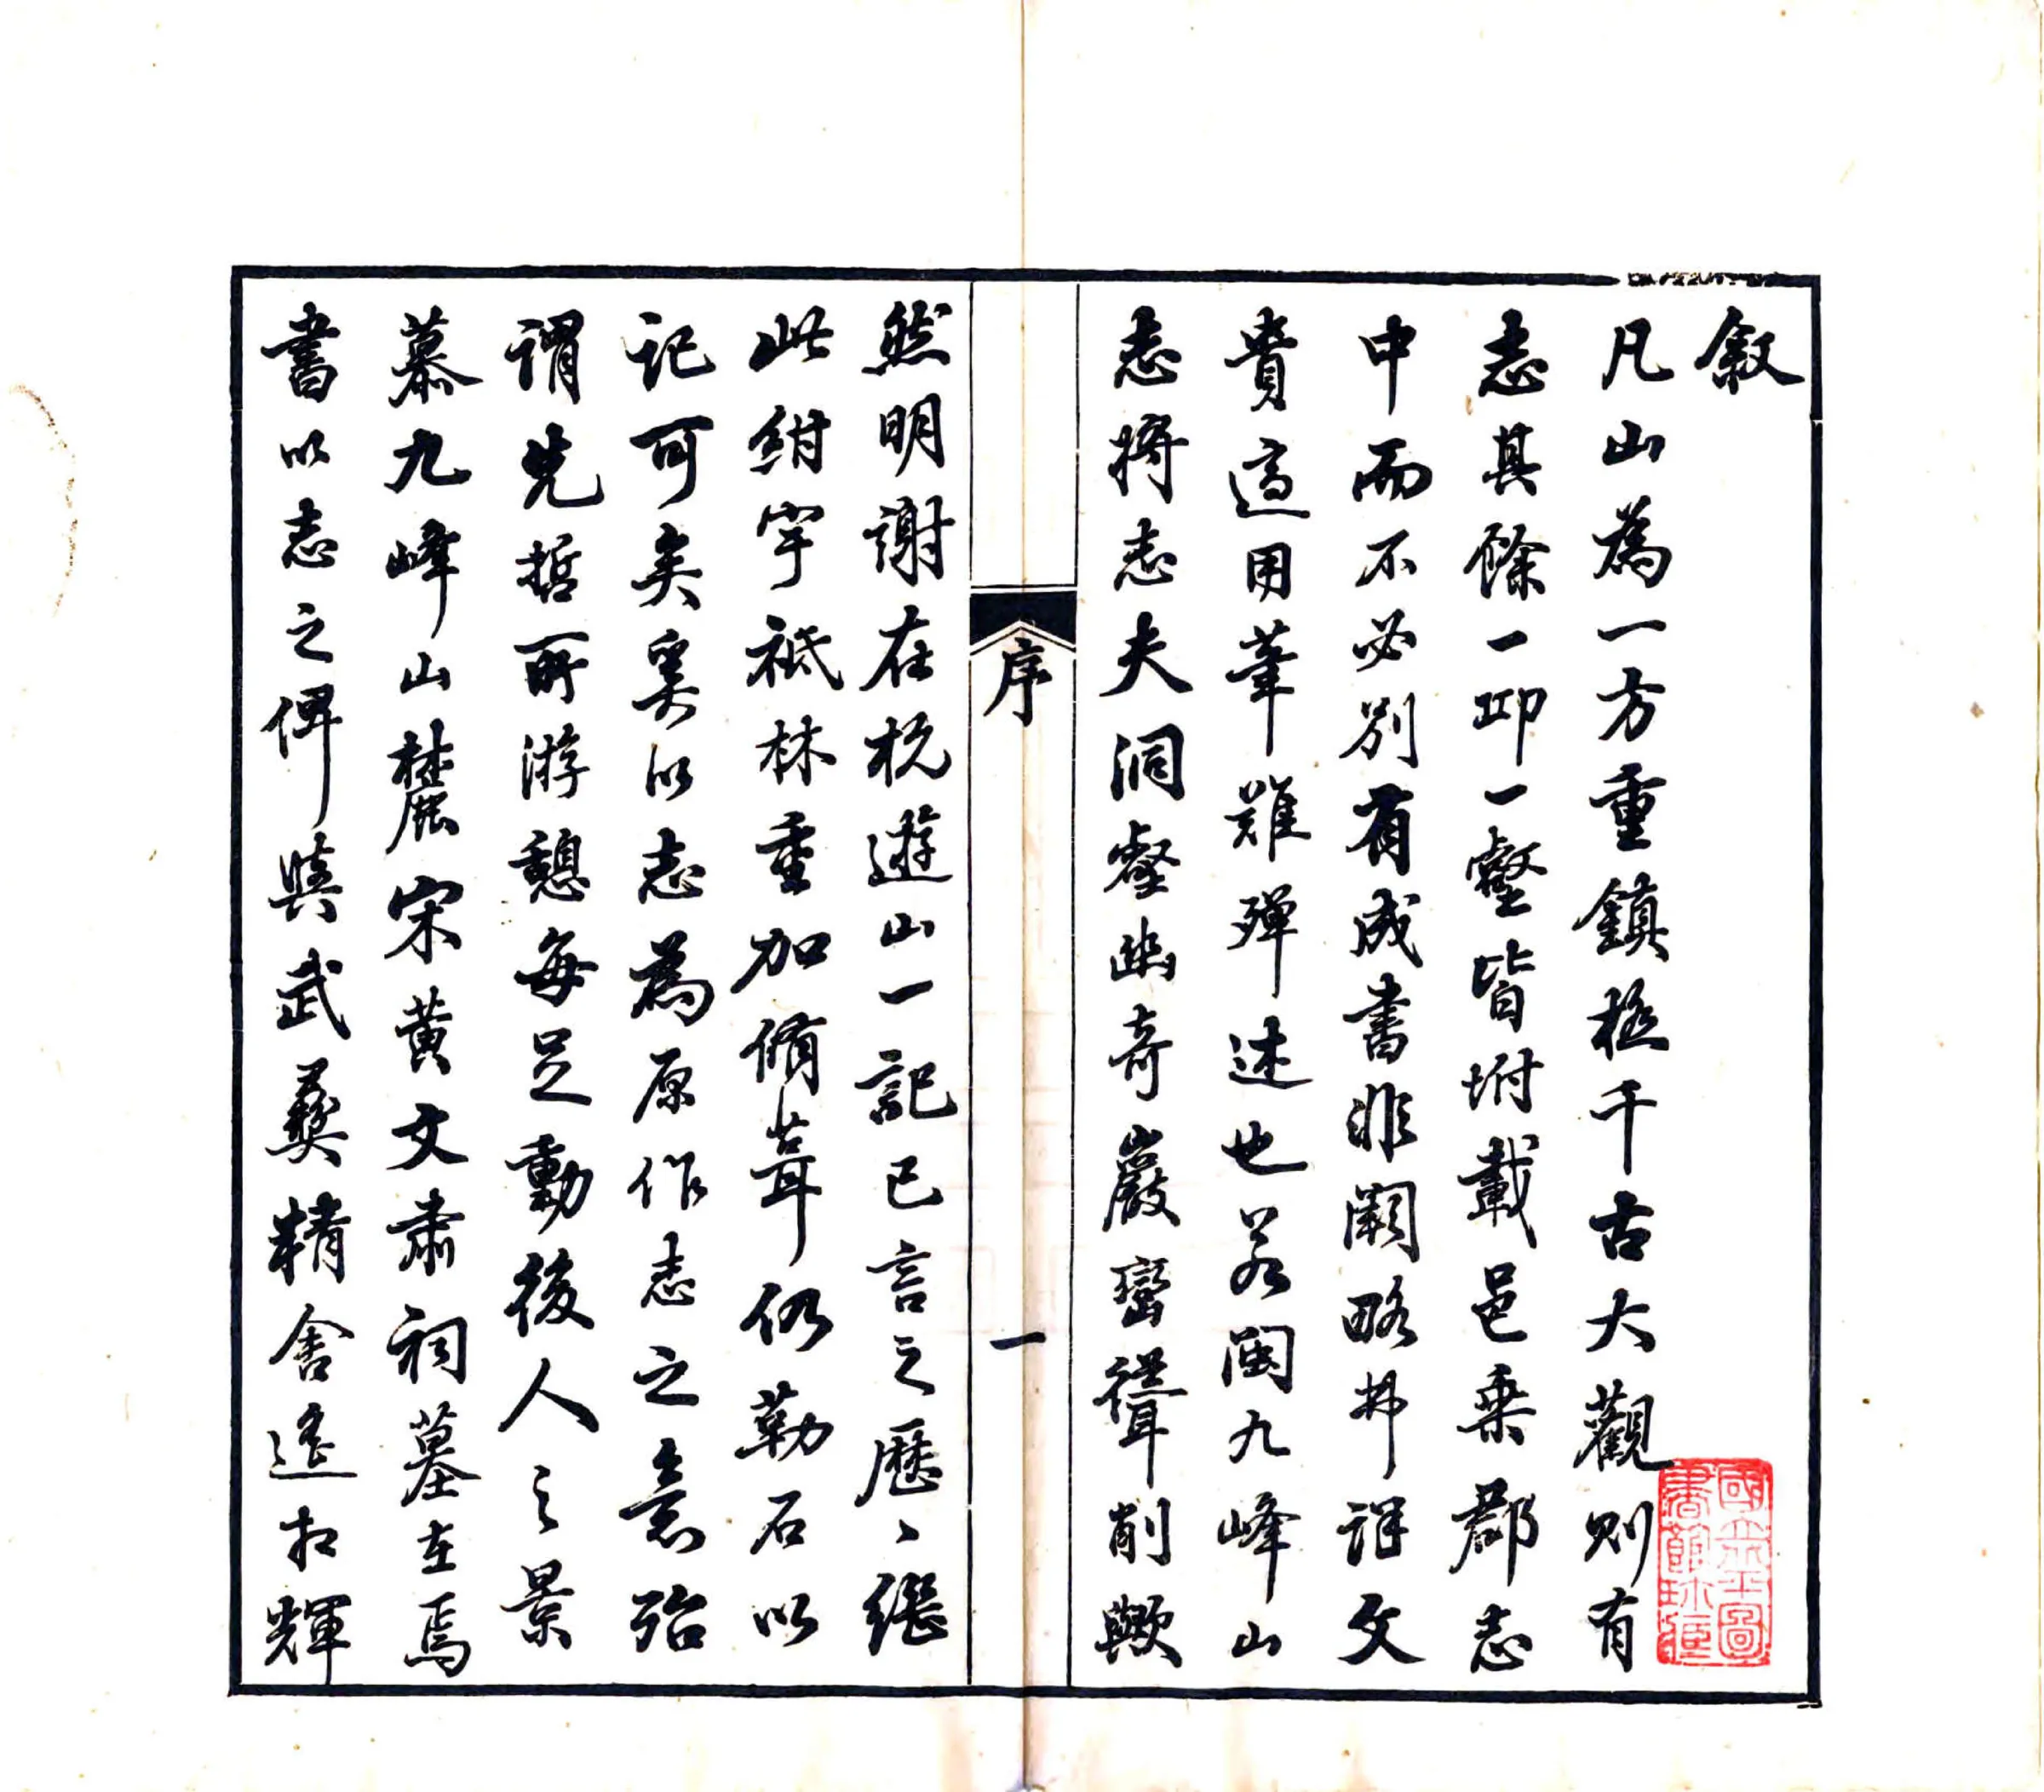 敘
凡山為一方重鎮極千古大觀則有
志其餘一邱一壑皆坿載邑乘郡志
中而不必別有成書非闕略也詳文
貴適用葦難殫述也若閩九峰山
志將志夫洞壑幽奇巖巒聳削歟
然明謝在杭遊山一記已言之歷〻繼
此紺宇祇林重加脩葺仍勒石以
記可矣奚以志為原作志之意殆
謂先哲所游憩每足動後人之景
慕九峰山麓宋黃文肅祠墓在焉
書以志之俾與武彝精舍遙相輝
序
一
國立北平圖
書館珍藏